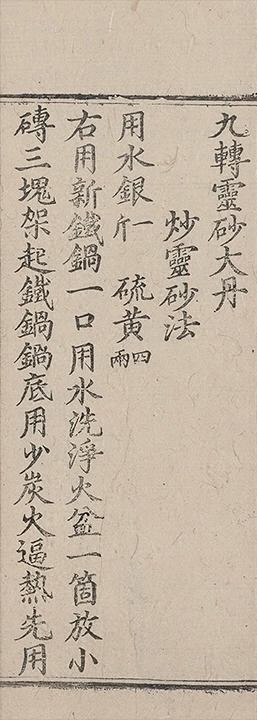 九轉靈砂大丹
炒靈砂法
用水銀一斤 硫黃四兩
右用新鐵鍋一口用水洗淨火盆一箇放小
磚三塊架起鐵鍋鍋底用少炭火逼熱先用